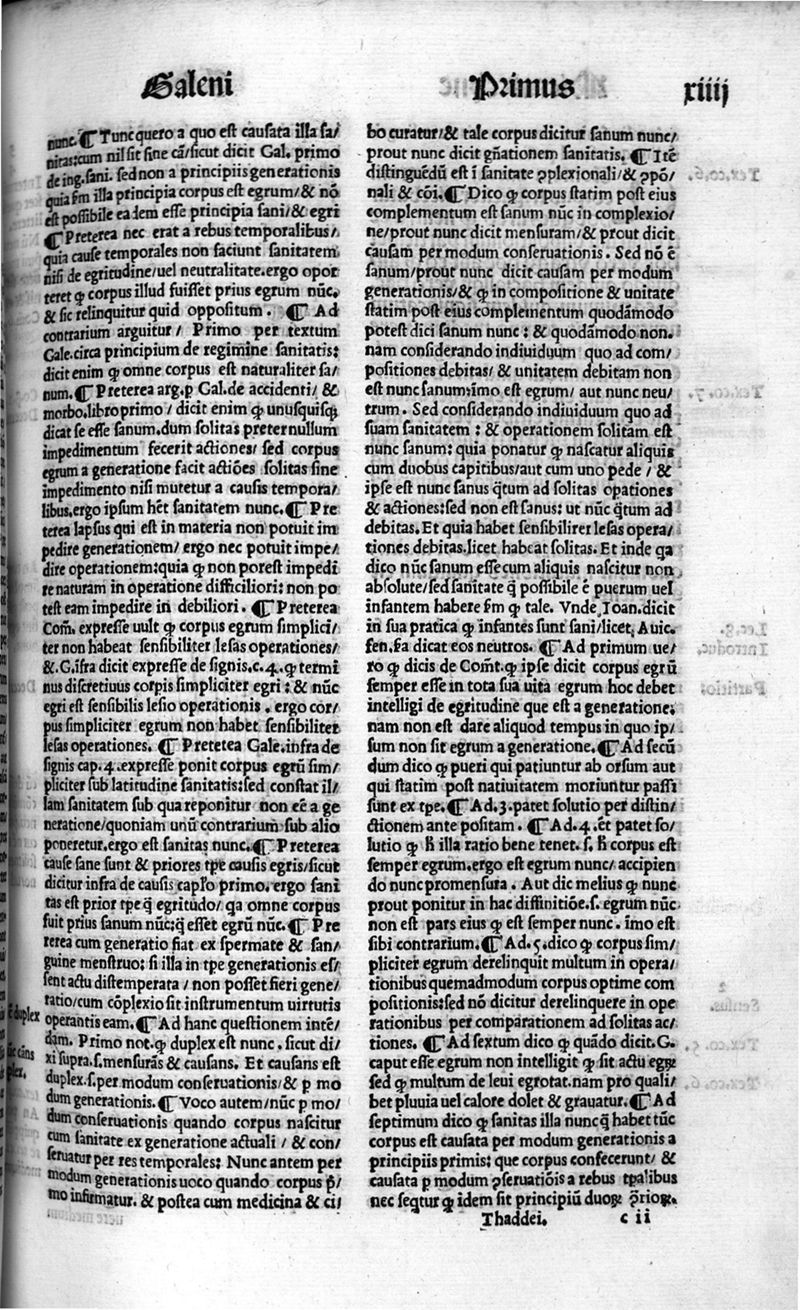 Galeni
Primus
xiiij
nunc.¶Tunc quero a quo est causata illa sa/
nitas:cum nil sit sine cã/sicut dicit Gal. primo
de ing.sani. sed non a principiis generationis
quia fm illa principia corpus est egrum/& nõ
est possibile eadem esse principia sani/& egri
¶Preterea nec erat a rebus temporalibus/
quia cause temporales non faciunt sanitatem
nisi de egritudine/uel neutralitate.ergo opor
teret ꝙ corpus illud fuisset prius egrum nũc.
& sic relinquitur quid oppositum. ¶ Ad
contrarium arguitur/ Primo per textum
Gale.circa principium de regimine sanitatis:
dicit enim ꝙ omne corpus est naturaliter sa/
num.¶Preterea arg.p Gal.de accidenti/ &
morbo.libro primo/ dicit enim ꝙ unusquisqꝫ
dicat se esse sanum.dum solitas preter nullum
impedimentum fecerit actiones/ sed corpus
egrum a generatione facit actiões solitas sine
impedimento nisi mutetur a causis tempora/
libus.ergo ipsum hẽt sanitatem nunc.¶Pre
terea lapsus qui est in materia non potuit im
pedire generationem/ ergo nec potuit impe/
dire operationem:quia ꝙ non potest impedi
re naturam in operatione difficiliori: non po
test eam impedire in debiliori. ¶Preterea
Com̃. expresse uult ꝙ corpus egrum simplici/
ter non habeat sensibiliter lesas operationes/
&.G.ĩfra dicit expresse de signis.c.4.ꝙ termi
nus discretiuus corpis simpliciter egri: & nũc
egri est sensibilis lesio operationis. ergo cor/
pus simpliciter egrum non habet sensibiliter
lesas operationes. ¶Pretetea Gale.infra de
signis cap.4.expresse ponit corpus egrũ sim/
pliciter sub latitudine sanitatis:sed constat il/
lam sanitatem sub qua reponitur non eẽ a ge
neratione/quoniam unũ contrarium sub alio
poneretur.ergo est sanitas nunc.¶Preterea
cause sane sunt & priores tpe causis egris/sicut
dicitur infra de causis capl̃o primo.ergo sani
tas est prior tpe q̃ egritudo/ qa omne corpus
fuit prius sanum nũc:q̃ esset egrũ nũc.¶Pre
terea cum generatio fiat ex spermate & san/
guine menstruo: si illa in tpe generationis es/
sent actu distemperata / non posset fieri gene/
ratio/cum cõplexio sit instrumentum uirtutis
operantis eam.¶Ad hanc questionem intẽ/
dam. Primo not.ꝙ duplex est nunc. sicut di/
xi supra.s.mensurãs & causans. Et causans est
duplex.s.per modum conseruationis/& p mo
dum generationis.¶Voco autem/nũc p mo/
dum conseruationis quando corpus nascitur
cum sanitate ex generatione actuali / & con/
seruatur per res temporales: Nunc autem per
modum generationis uoco quando corpus p̃/
mo infirmatur. & postea cum medicina & ci/
bo curatur/& tale corpus dicitur sanum nunc/
prout nunc dicit gñationem sanitatis. ¶Itẽ
distinguẽdũ est ĩ sanitate ꝯplexionali/& ꝯpõ/
nali & cõi.¶Dico ꝙ corpus statim post eius
complementum est sanum nũc in complexio/
ne/prout nunc dicit mensuram/& prout dicit
causam per modum conseruationis. Sed nõ ẽ
sanum/prout nunc dicit causam per modum
generationis/& ꝙ in compositione & unitate
statim post eius complementum quodãmodo
potest dici sanum nunc: & quodãmodo non.
nam considerando indiuiduum quo ad com/
positiones debitas/ & unitatem debitam non
est nunc sanum:imo est egrum/ aut nunc neu/
trum. Sed considerando indiuiduum quo ad
suam sanitatem : & operationem solitam est
nunc sanum: quia ponatur ꝙ nascatur aliquis
cum duobus capitibus/aut cum uno pede / &
ipse est nunc sanus q̃tum ad solitas opationes
& actiones:sed non est sanus: ut nũc q̃tum ad
debitas.Et quia habet sensibiliter lesas opera/
tiones debitas.licet habeat solitas. Et inde qa
dico nũc sanum esse cum aliquis nascitur non
absolute/sed sanitate q̃ possibile ẽ puerum uel
infantem habere fm ꝙ tale. Vnde Ioan.dicit
in sua pratica ꝙ infantes sunt sani/licet Auic.
fen.ſa dicat eos neutros. ¶Ad primum ue/
ro ꝙ dicis de Com̃t.ꝙ ipse dicit corpus egrũ
semper esse in tota sua uita egrum hoc debet
intelligi de egritudine que est a generatione:
nam non est dare aliquod tempus in quo ip/
sum non sit egrum a generatione.¶Ad secũ
dum dico ꝙ pueri qui patiuntur ab orsum aut
qui statim post natiuitatem moriuntur passi
sunt ex tpe.¶Ad.3.patet solutio per distin/
ctionem ante positam. ¶Ad.4.ẽt patet so/
lutio ꝙ h̃ illa ratio bene tenet. s. h̃ corpus est
semper egrum.ergo est egrum nunc/ accipien
do nunc pro mensura. Aut dic melius ꝙ nunc
prout ponitur in hac diffinitiõe.s. egrum nũc
non est pars eius ꝙ est semper nunc. imo est
sibi contrarium.¶Ad.5.dico ꝙ corpus sim/
pliciter egrum derelinquit multum in opera/
tionibus quemadmodum corpus optime com
positionis:sed nõ dicitur derelinquere in ope
rationibus per comparationem ad solitas ac/
tiones. ¶Ad sextum dico ꝙ quãdo dicit.G.
caput esse egrum non intelligit ꝙ sit actu egꝝ
sed ꝙ multum de leui egrotat.nam pro quali/
bet pluuia uel calore dolet & grauatur. ¶Ad
septimum dico ꝙ sanitas illa nuncq̃ habet tũc
corpus est causata per modum generationis a
principiis primis: que corpus confecerunt/ &
causata p modum ꝯseruatiõis a rebus tp̃alibus
nec seqtur ꝙ idem sit principiũ duoꝝ ꝯ̃rioꝝ.
Thaddei.
c ii